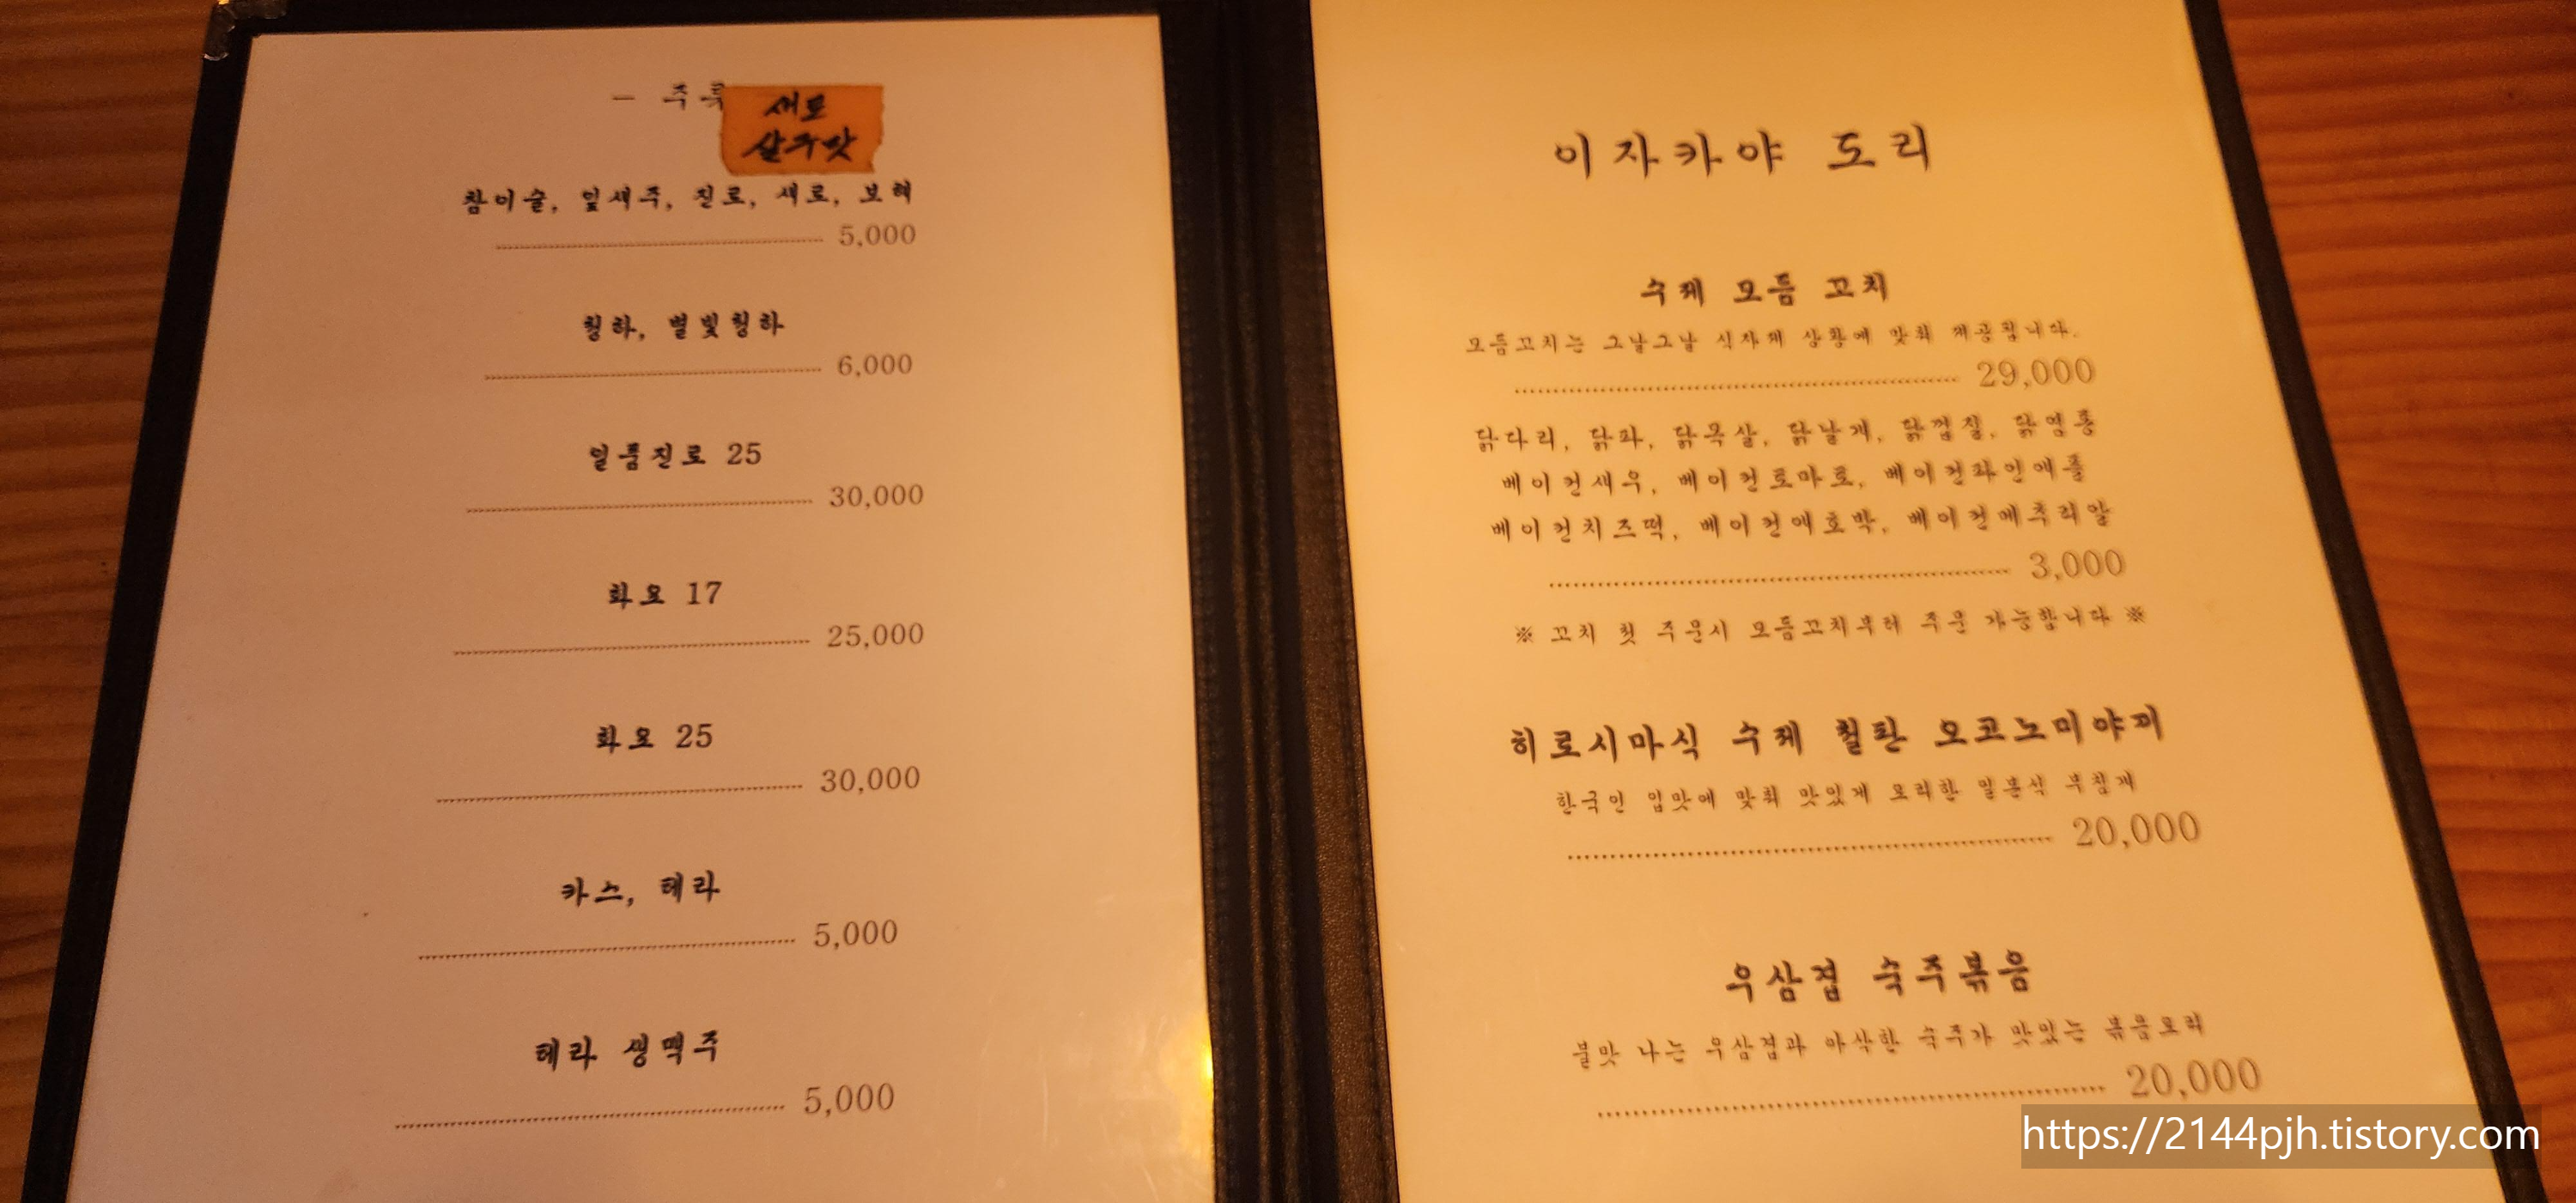 - 주류
새로
살구맛
참이슬, 잎새주, 진로, 새로, 보해
5,000
청하, 별빛청하
6,000
일품진로 25
30,000
화요 17
25,000
화요 25
30,000
카스, 테라
5,000
테라 생맥주
5,000
이자카야 도리
수제 모듬 꼬치
모듬꼬치는 그날그날 식자재 상황에 맞춰 제공됩니다.
29,000
닭다리, 닭파, 닭목살, 닭날개, 닭껍질, 닭염통
베이컨새우, 베이컨토마토, 베이컨파인애플
베이컨치즈떡, 베이컨애호박, 베이컨메추리알
3,000
※ 꼬치 첫 주문시 모듬꼬치부터 주문 가능합니다 ※
히로시마식 수제 철판 오코노미야끼
한국인 입맛에 맞춰 맛있게 요리한 일본식 부침개
20,000
우삼겹 숙주볶음
불맛 나는 우삼겹과 아삭한 숙주가 맛있는 볶음요리
20,000
https://2144pjh.tistory.com